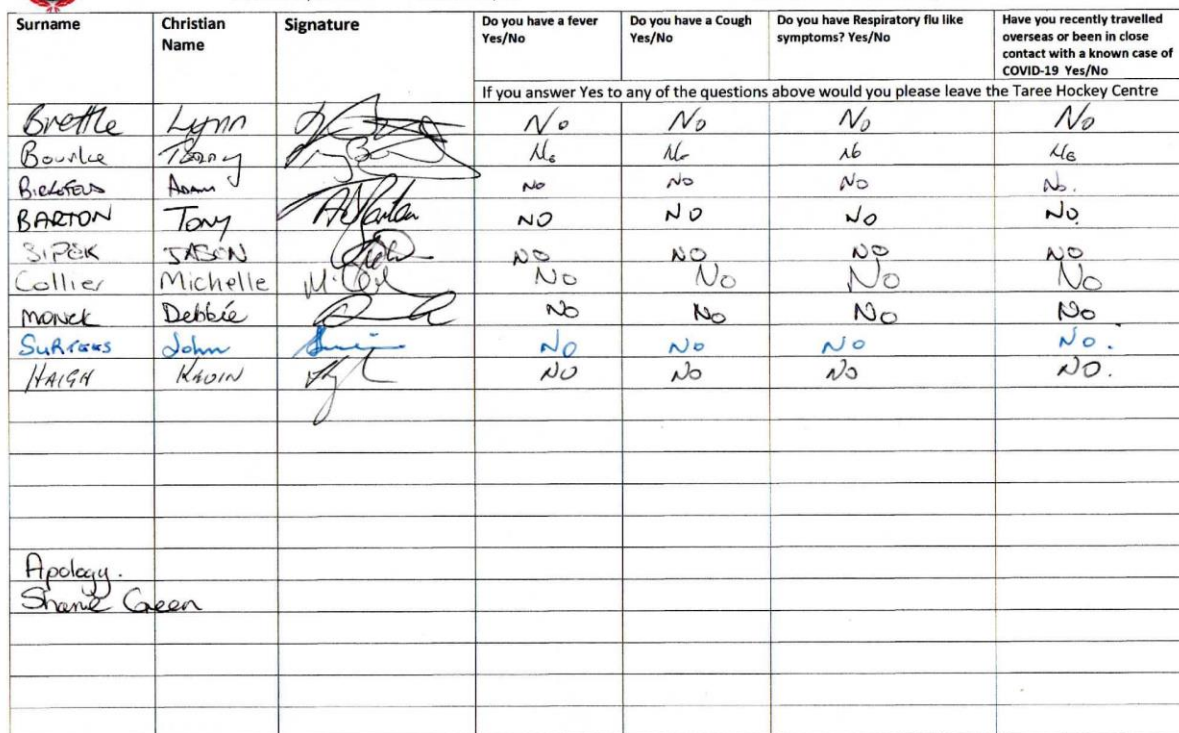 Surname Christian Name Signature Do you have a fever Yes/No Do you have a Cough Yes/No Do you have Respiratory flu like symptoms? Yes/No Have you recently travelled overseas or been in close contact with a known case of COVID-19 Yes/No
If you answer Yes to any of the questions above would you please leave the Taree Hockey Centre
Brettle Lynn No No No No
Bourke No No No No
Adam No No No No.
BARTON Tony NO NO NO NO.
JASON NO NO NO NO
Collier Michelle M. No No No No
MONCK Debbie No No No No
SURTEES John NO NO NO NO.
HAIGH KEVIN NO NO NO NO.
Apology.
Green